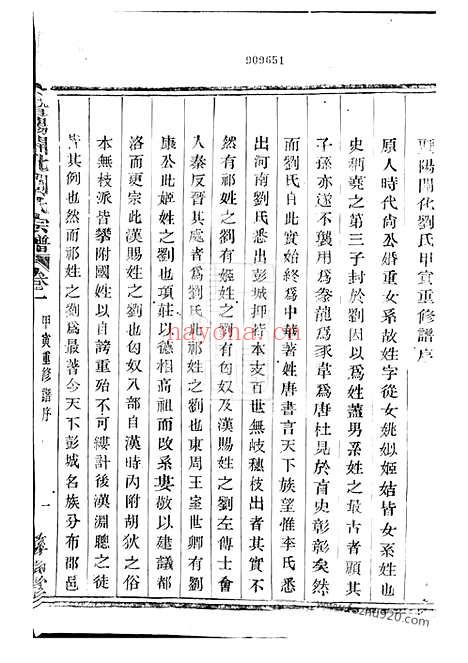 909651
襄陽開化劉氏甲寅重修譜序
原人時代尚公婚重女系故姓字從女姚姒姬姞皆女系姓也
史稱堯之第三子封於劉因以爲姓蓋男系姓之最古者顧其
子孫亦遂不襲用爲豢龍爲豕韋爲唐杜見於盲史彰彰矣然
而劉氏自此實始終爲中華著姓唐書言天下族望惟李氏悉
出河南劉氏悉出彭城抑若本支百世無歧穗枝出者其實不
然有祁姓之劉有姬姓之劉有匈奴及漢賜姓之劉左傳士會
入秦反晉其處者爲劉氏此祁姓之劉也東周王室世卿有劉
康公此姬姓之劉也項莊以德相高祖而改系婁敬以建議都
洛而更宗此漢賜姓之劉也匈奴入部自漢時內附胡狄之俗
本無枝派皆攀附國姓以自誇重殆不可縷計後漢淵聰之徒
皆其例也然而祁姓之劉爲最著今天下彭城名族分布郡邑
陽開化劉氏宗譜
卷一
甲寅重修譜序
一
hayona.cn
zhu920.com